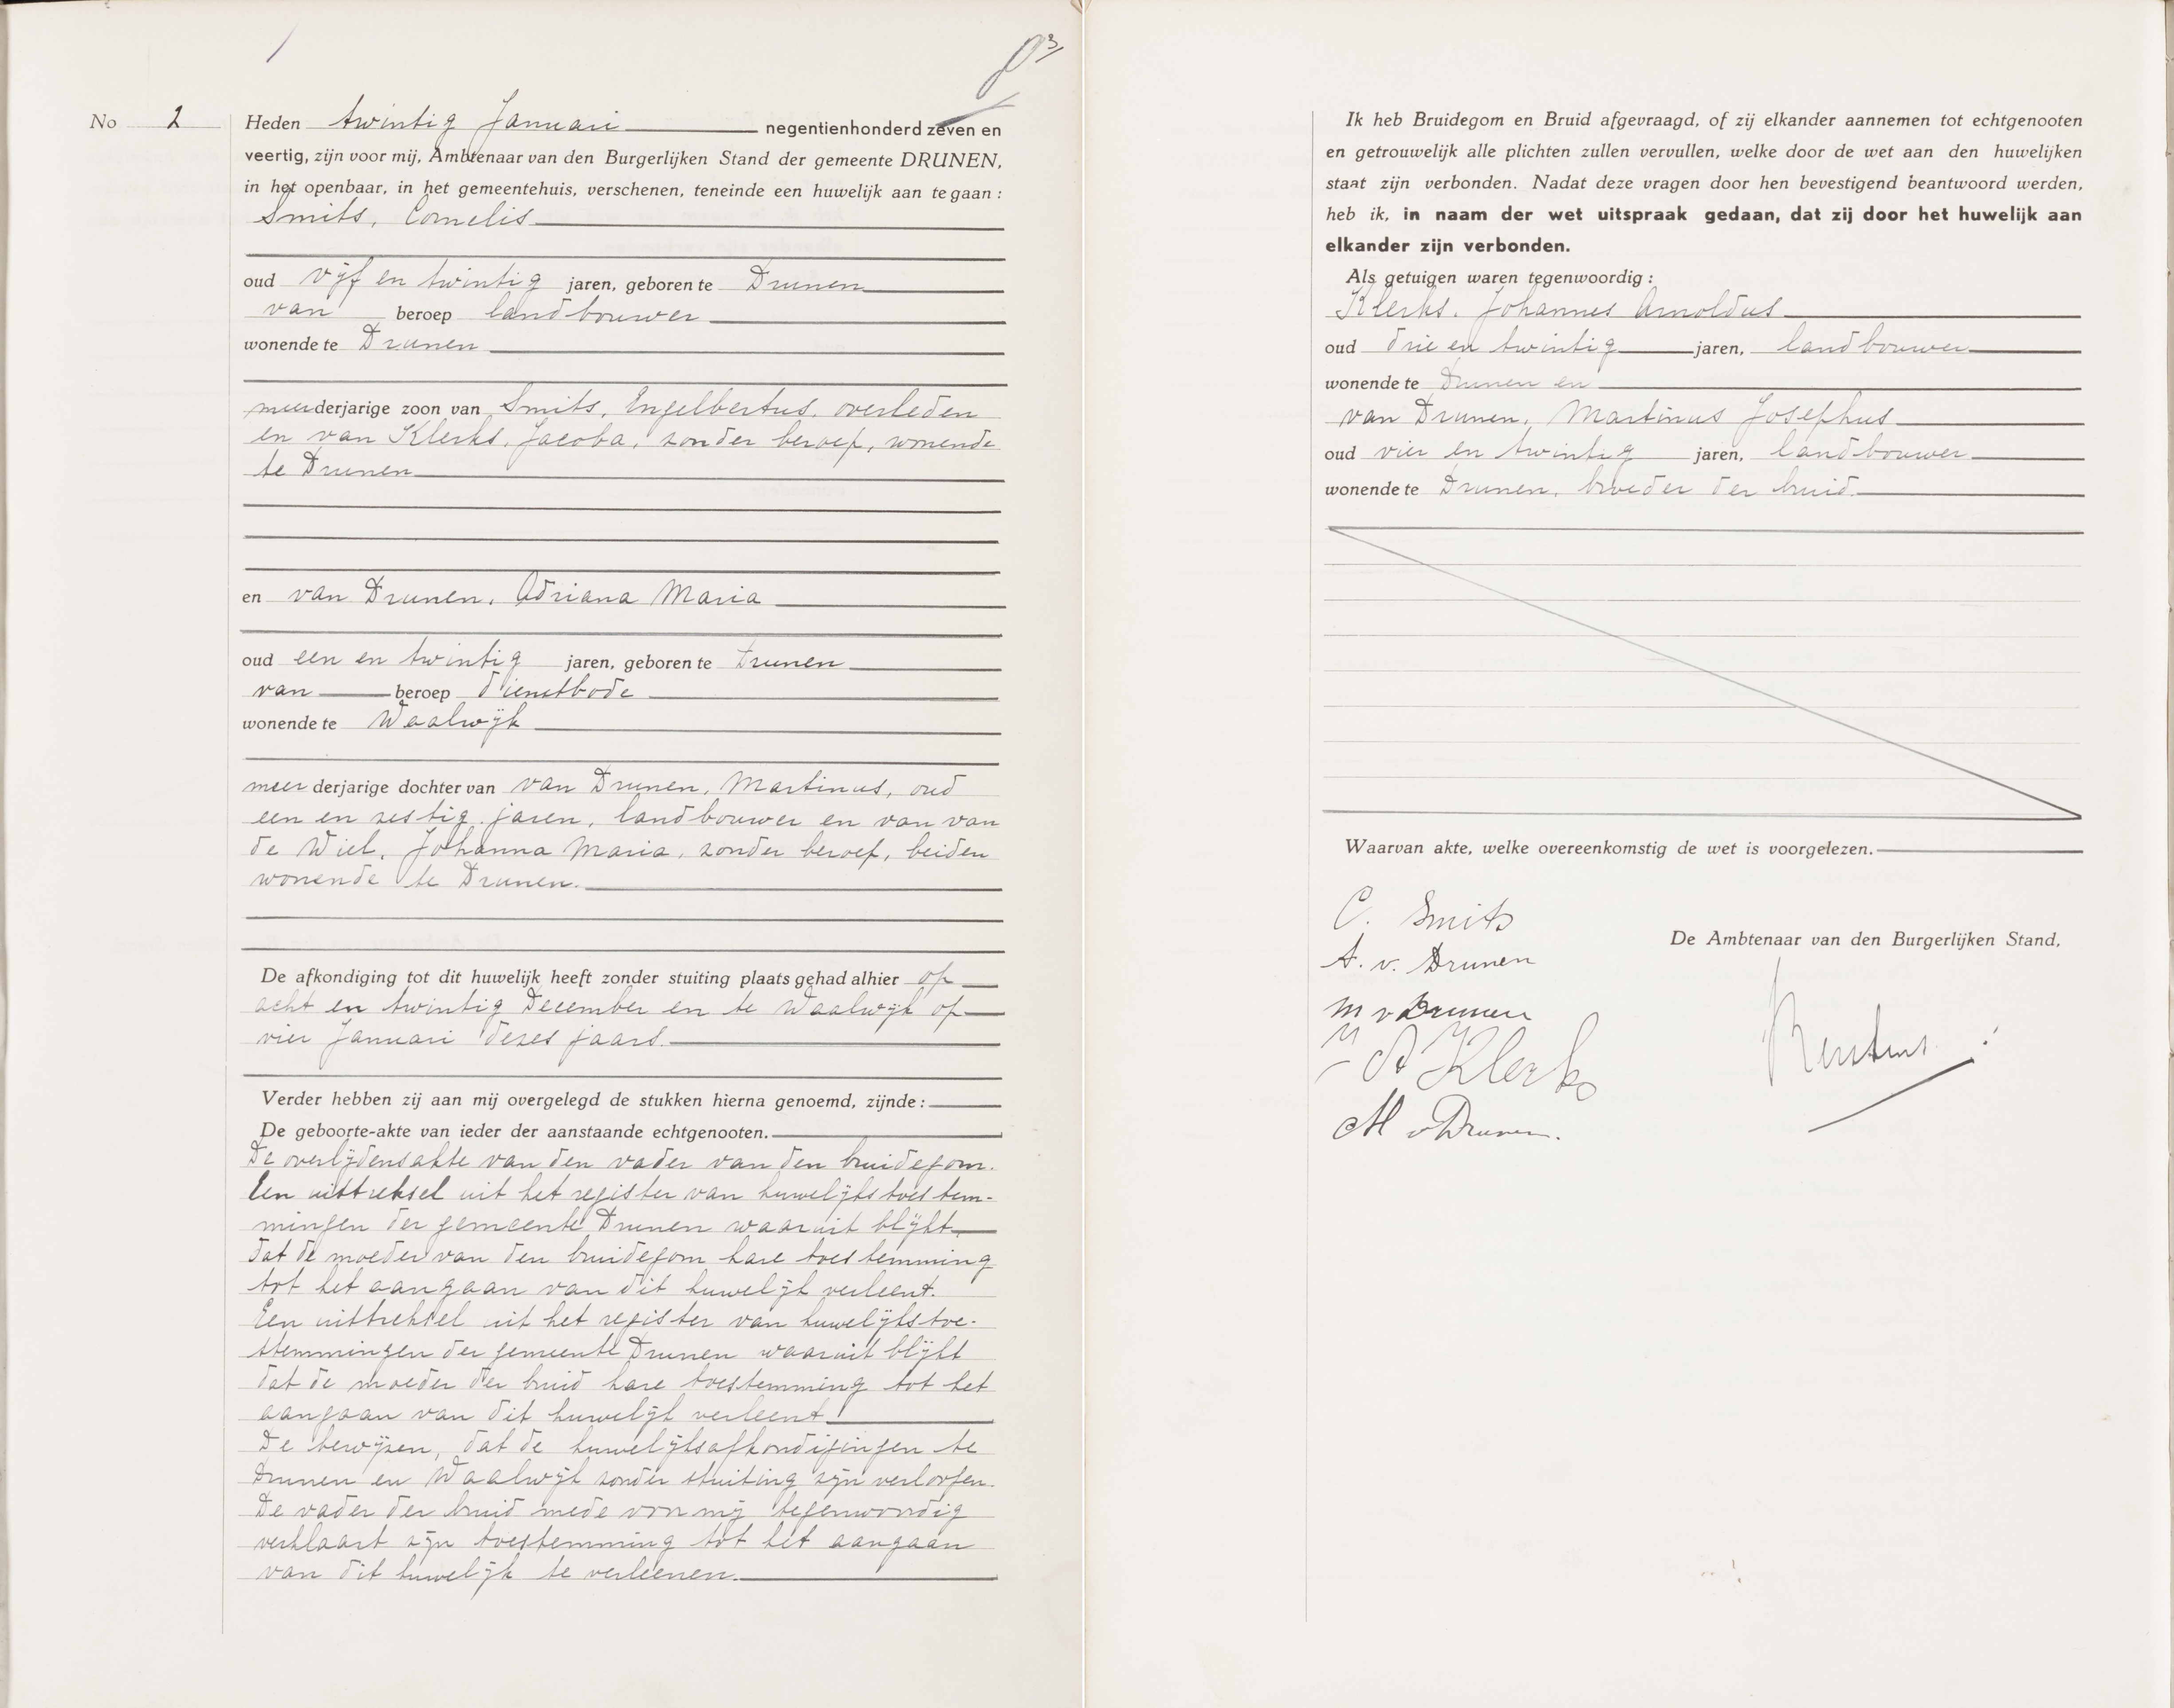 3
No 2
Heden twintig Januari negentienhonderd zeven en
veertig, zijn voor mij, Ambtenaar van den Burgerlijken Stand der gemeente DRUNEN,
in het openbaar, in het gemeentehuis, verschenen, teneinde een huwelijk aan te gaan :
Smits, Cornelis
oud vijf en twintig jaren, geboren te Drunen
van beroep landbouwer
wonende te Drunen
meerderjarige zoon van Smits, Engelbertus, overleden
en van Klerks, Jacoba, zonder beroep, wonende
te Drunen
en van Drunen, Adriana Maria
oud een en twintig jaren, geboren te Drunen
van beroep dienstbode
wonende te Waalwijk
meerderjarige dochter van van Drunen, Martinus, oud
een en zestig jaren, landbouwer en van van
de Wiel, Johanna Maria, zonder beroep, beiden
wonende te Drunen.
De afkondiging tot dit huwelijk heeft zonder stuiting plaats gehad alhier op
acht en twintig December en te Waalwijk op
vier Januari dezes jaars.
Verder hebben zij aan mij overgelegd de stukken hierna genoemd, zijnde :
De geboorte-akte van ieder der aanstaande echtgenooten.
De overlijdensakte van den vader van den bruidegom.
Een uittreksel uit het register van huwelijkstoestem-
mingen der gemeente Drunen waaruit blijkt
dat de moeder van den bruidegom hare toestemming
tot het aangaan van dit huwelijk verleent.
Een uittreksel uit het register van huwelijkstoe-
stemmingen der gemeente Drunen waaruit blijkt
dat de moeder der bruid hare toestemming tot het
aangaan van dit huwelijk verleent.
De bewijzen, dat de huwelijksafkondigingen te
Drunen en Waalwijk zonder stuiting zijn verloopen.
De vader der bruid mede voor mij tegenwoordig
verklaart zijn toestemming tot het aangaan
van dit huwelijk te verleenen.
Ik heb Bruidegom en Bruid afgevraagd, of zij elkander aannemen tot echtgenooten
en getrouwelijk alle plichten zullen vervullen, welke door de wet aan den huwelijken
staat zijn verbonden. Nadat deze vragen door hen bevestigend beantwoord werden,
heb ik, in naam der wet uitspraak gedaan, dat zij door het huwelijk aan
elkander zijn verbonden.
Als getuigen waren tegenwoordig :
Klerks, Johannes Arnoldus
oud drie en twintig jaren, landbouwer
wonende te Drunen en
van Drunen, Martinus Josephus
oud vier en twintig jaren, landbouwer
wonende te Drunen, broeder der bruid.
Waarvan akte, welke overeenkomstig de wet is voorgelezen.
C. Smits
De Ambtenaar van den Burgerlijken Stand,
A. v. Drunen
M v Drunen
A Klerks
M v Drunen.